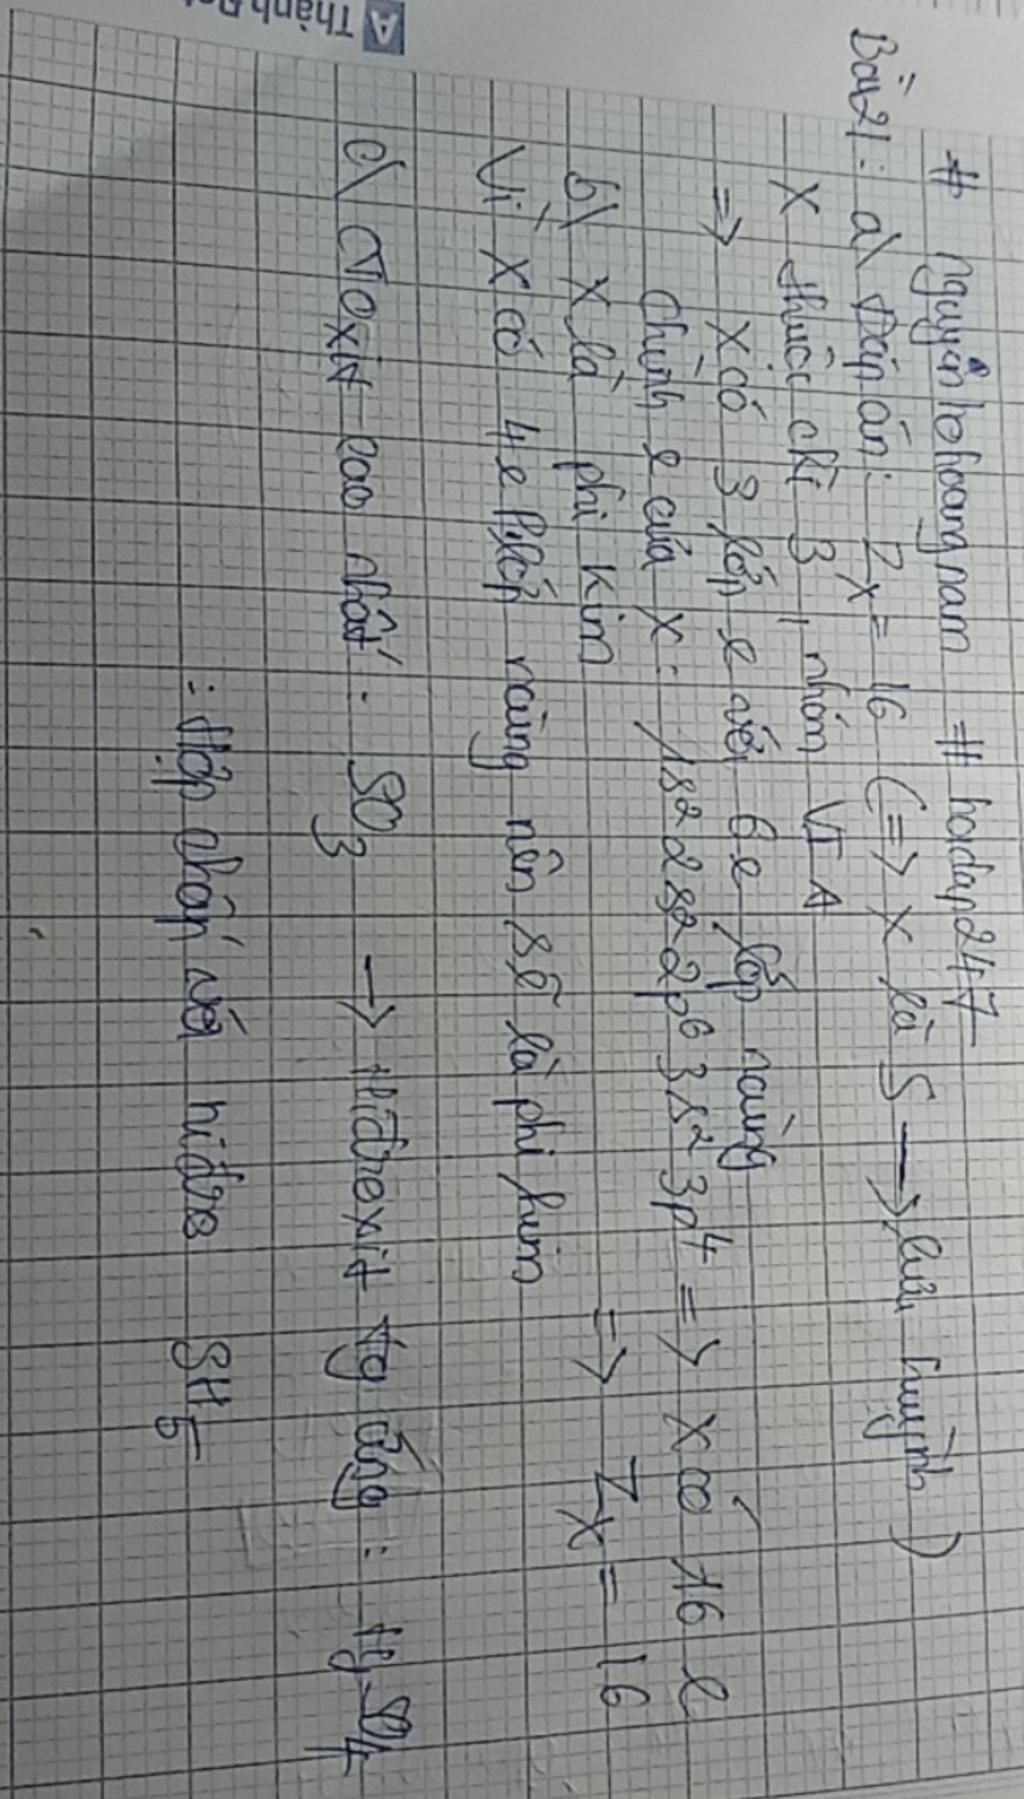 # nguyenlehoangnam # hoidap247
Bài 21: a\ Đáp án: Zx = 16 (=> X là S → lưu huỳnh)
X thuộc chì 3, nhóm VI A
=> X có 3 lớp e với 6e lớp ngoài
Chình e của X: 1s² 2s² 2p⁶ 3s² 3p⁴ => X có 16 e
=> Zx = 16
b\ X là phi kim
Vì X có 4e lớp nên sẽ là phi kim
c\ CToxit cao nhất: SO₃ → Hiđroxit tg ứng: H₂SO₄
: Hợp chấp với hiđro SH₅
Thành